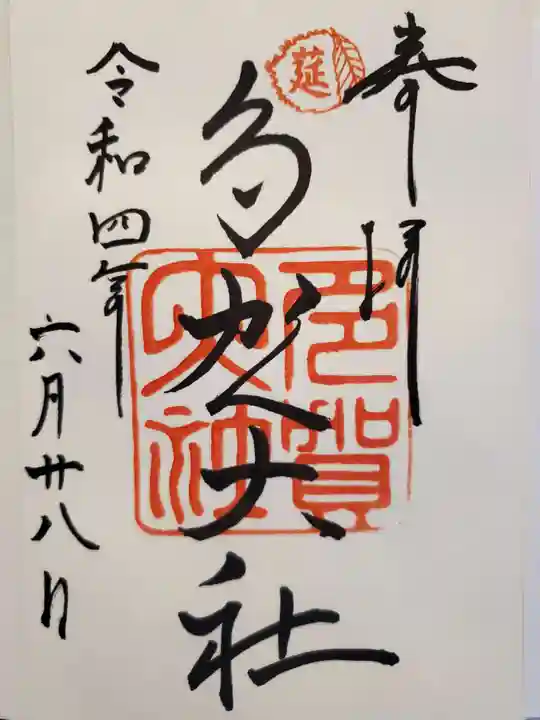 奉拝
莚
多賀大社
多賀大社
令和四年
六月廿八日